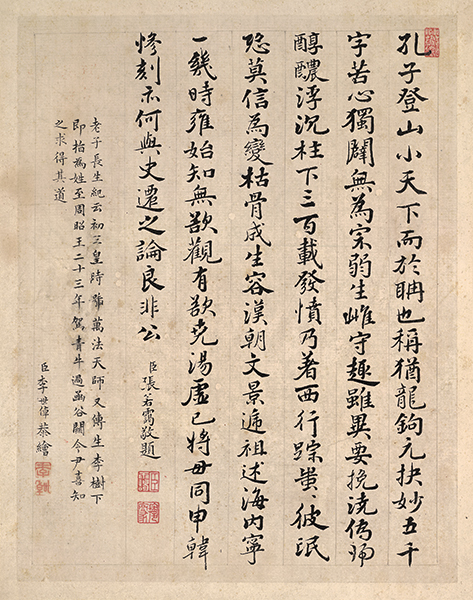 孔子登山小天下而於聃也稱猶龍鉤元抉妙五千
字苦心獨闢無為宗弱生雌守趣雖異要挽澆偽師
醇醲浮沉柱下三百載發憤乃著西行踪蚩、彼氓
恐莫信為變枯骨成生容漢朝文景遞祖述海內寧
一幾時雍始知無欲觀有欲堯湯虛已將毋同申韓
慘刻亦何與史遷之論良非公
臣張若靄敬題
老子長生紀云初三皇時號萬法天師又傳生李樹下
即指為姓至周昭王二十三年駕青牛過函谷關令尹喜知
之求得其道
臣李世倬恭繪